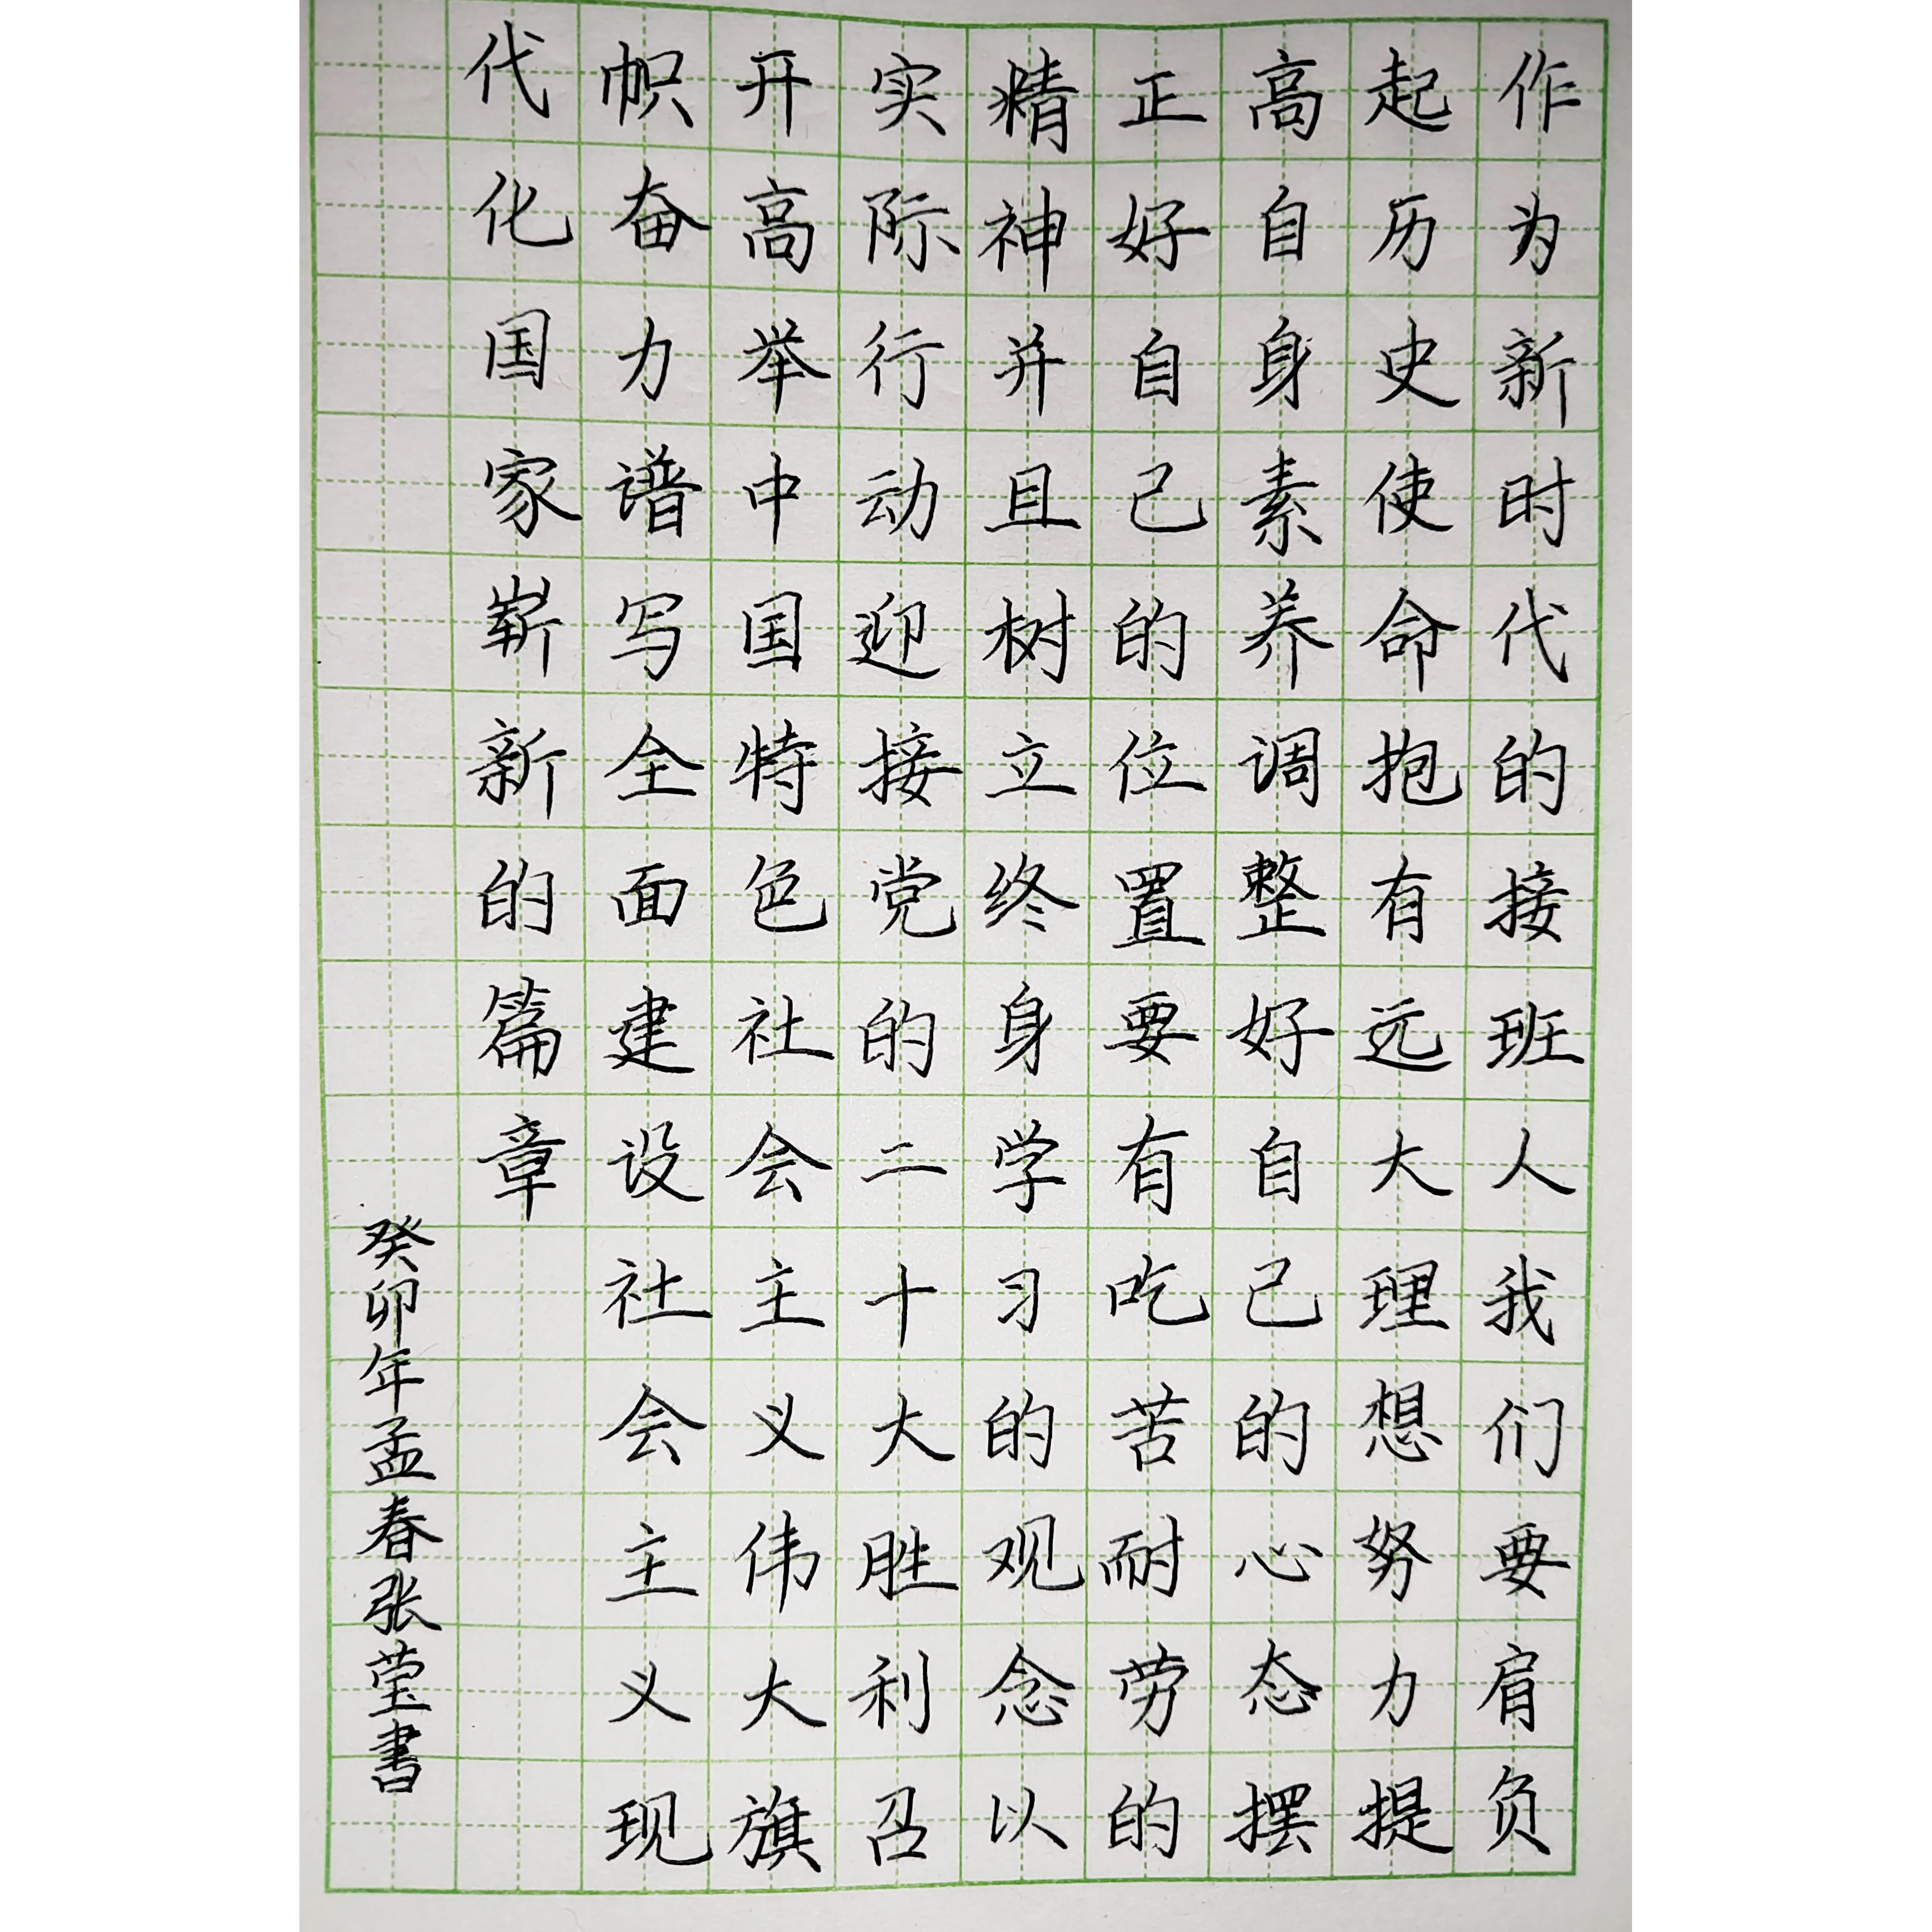 作为新时代的接班人我们要肩负
起历史使命抱有远大理想努力提
高自身素养调整好自己的心态摆
正好自己的位置要有吃苦耐劳的
精神并且树立终身学习的观念以
实际行动迎接党的二十大胜利召
开高举中国特色社会主义伟大旗
帜奋力谱写全面建设社会主义现
代化国家崭新的篇章
癸卯年孟春张莹書